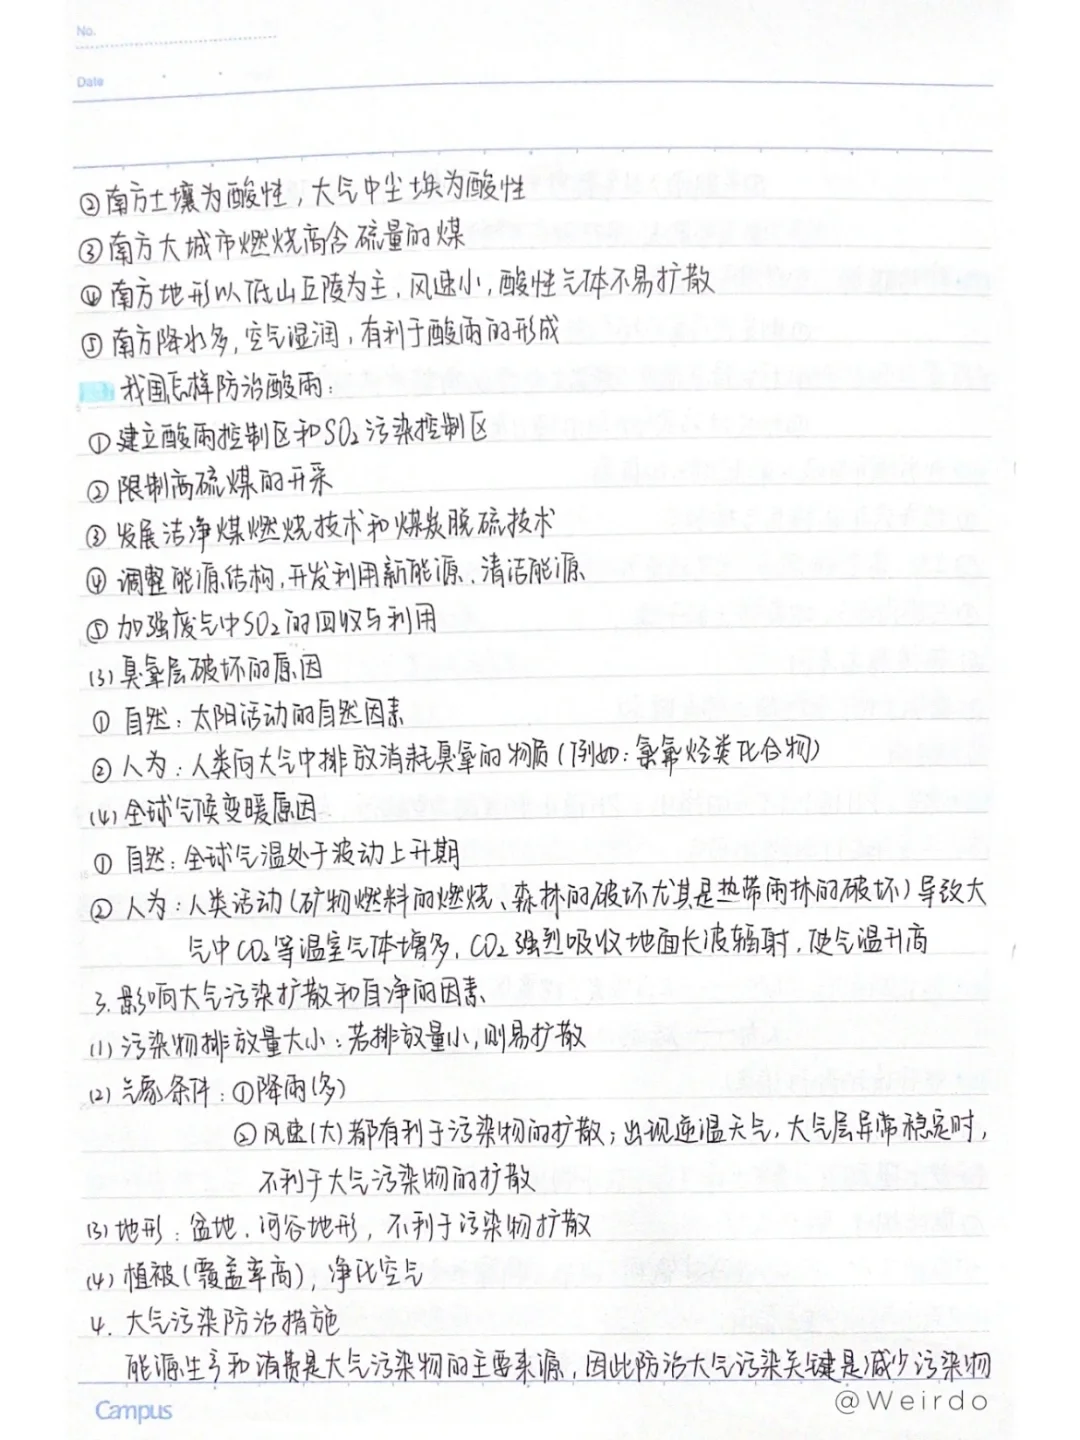 No.
Date
②南方土壤为酸性，大气中尘埃为酸性
③南方大城市燃烧高含硫量的煤
④南方地形以低山丘陵为主，风速小，酸性气体不易扩散
⑤南方降水多，空气湿润，有利于酸雨的形成
我国怎样防治酸雨：
①建立酸雨控制区和SO₂污染控制区
②限制高硫煤的开采
③发展洁净煤燃烧技术和煤炭脱硫技术
④调整能源结构，开发利用新能源、清洁能源
⑤加强废气中SO₂的回收与利用
(3)臭氧层破坏的原因
①自然：太阳活动的自然因素
②人为：人类向大气中排放消耗臭氧的物质(例如：氯氟烃类化合物)
(4)全球气候变暖原因
①自然：全球气温处于波动上升期
②人为：人类活动(矿物燃料的燃烧、森林的破坏尤其是热带雨林的破坏)导致大
气中CO₂等温室气体增多，CO₂强烈吸收地面长波辐射，使气温升高
3.影响大气污染扩散和自净的因素
(1)污染物排放量大小：若排放量小，则易扩散
(2)气象条件：①降雨(多)
②风速(大)都有利于污染物的扩散；出现逆温天气，大气层异常稳定时，
不利于大气污染物的扩散
(3)地形：盆地、河谷地形，不利于污染物扩散
(4)植被(覆盖率高)，净化空气
4.大气污染防治措施
能源生产和消费是大气污染物的主要来源，因此防治大气污染关键是减少污染物
Campus
@Weirdo